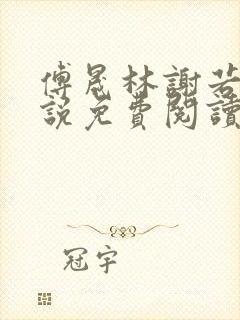 傅晟林謝若
說免費閱讀
冠宇